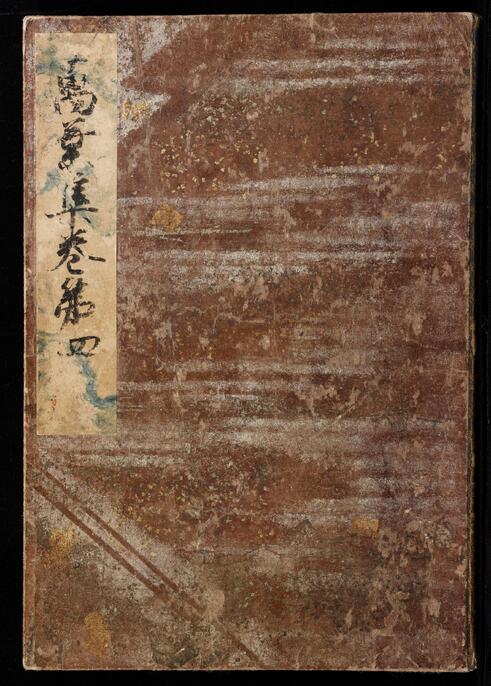 萬葉集巻第四